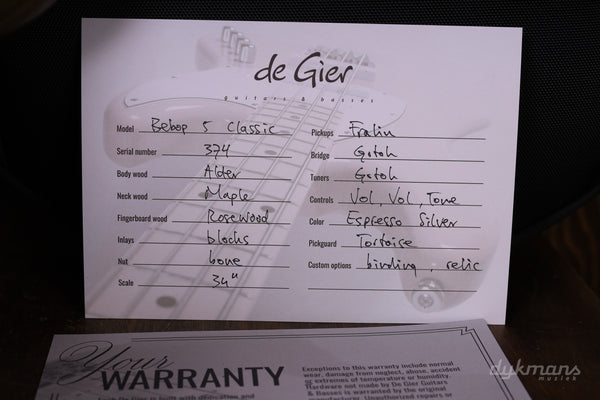 de Gier
guitars & basses
Model Bebop 5 Classic
Serial number 374
Body wood Alder
Neck wood Maple
Fingerboard wood Rosewood
Inlays blocks
Nut bone
Scale 34"
Pickups Fralin
Bridge Gotoh
Tuners Gotoh
Controls Vol, Vol, Tone
Color Espresso Silver
Pickguard Tortoise
Custom options binding, relic
Your
WARRANTY
Exceptions to this warranty include normal
wear, damage from neglect, abuse, accident
or extremes of temperature or humidity.
Hardware not made by De Gier Guitars
& Basses is warranted by the original
manufacturer. Unauthorized repairs or
dykmans
muziek